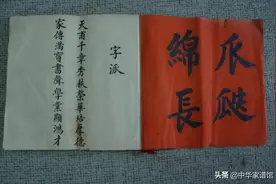 瓜瓞
綿長
字派
天甫千章秀榮華培厚德
家傳满寶書聲學業顯鴻才
头条 @中华家谱馆